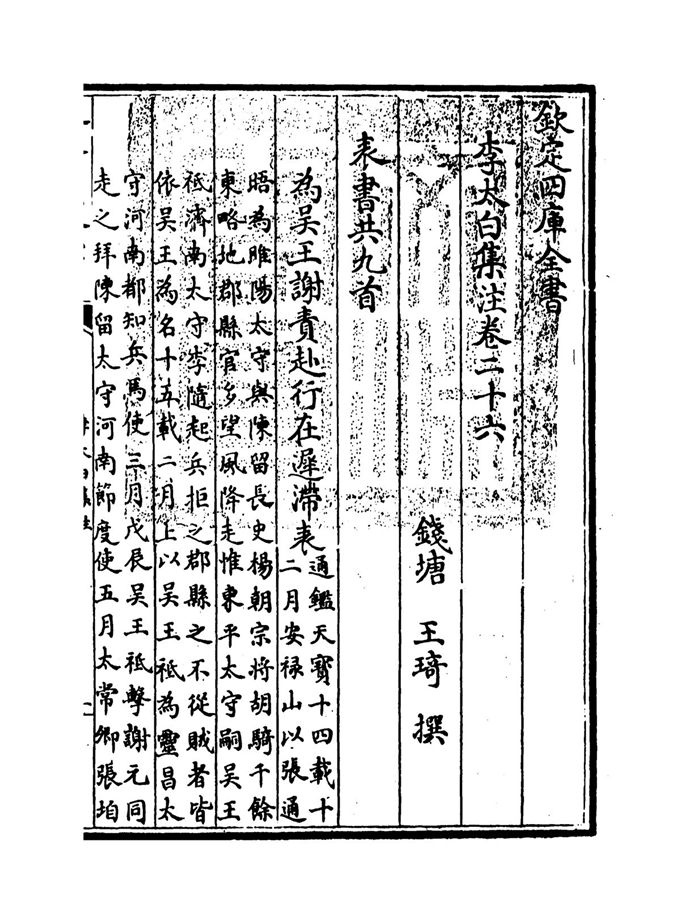 欽定四庫全書
李太白集注卷二十六
錢塘 王琦 撰
表書共九首
為吳王謝責赴行在遲滯表
通鑑天寳十四載十
二月安禄山以張通
晤為睢陽太守與陳留長史楊朝宗將胡騎千餘
東略地郡縣官多望風降走惟東平太守嗣吳王
祗濟南太守李隨起兵拒之郡縣之不從賊者皆
依吳王為名十五載二月上以吳王祗為靈昌太
守河南都知兵馬使三月戊辰吳王祗擊謝元同
走之拜陳留太守河南節度使五月太常卿張垍